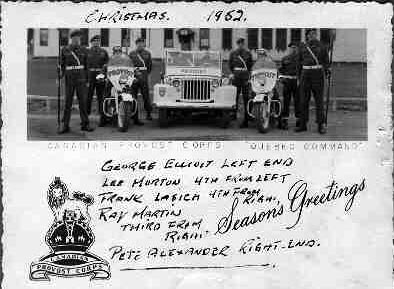 CHRISTMAS. 1962.
PROVOST
CANADIAN PROVOST CORPS "QUEBEC COMMAND"
GEORGE ELLIOTT LEFT END
LEE HORTON 4TH FROM LEFT
FRANK LASICH 4TH FROM RIGHT,
RAY MARTIN
THIRD FROM RIGHT.
Seasons Greetings
PETE ALEXANDER RIGHT-END.
CANADIAN
PROVOST CORPS